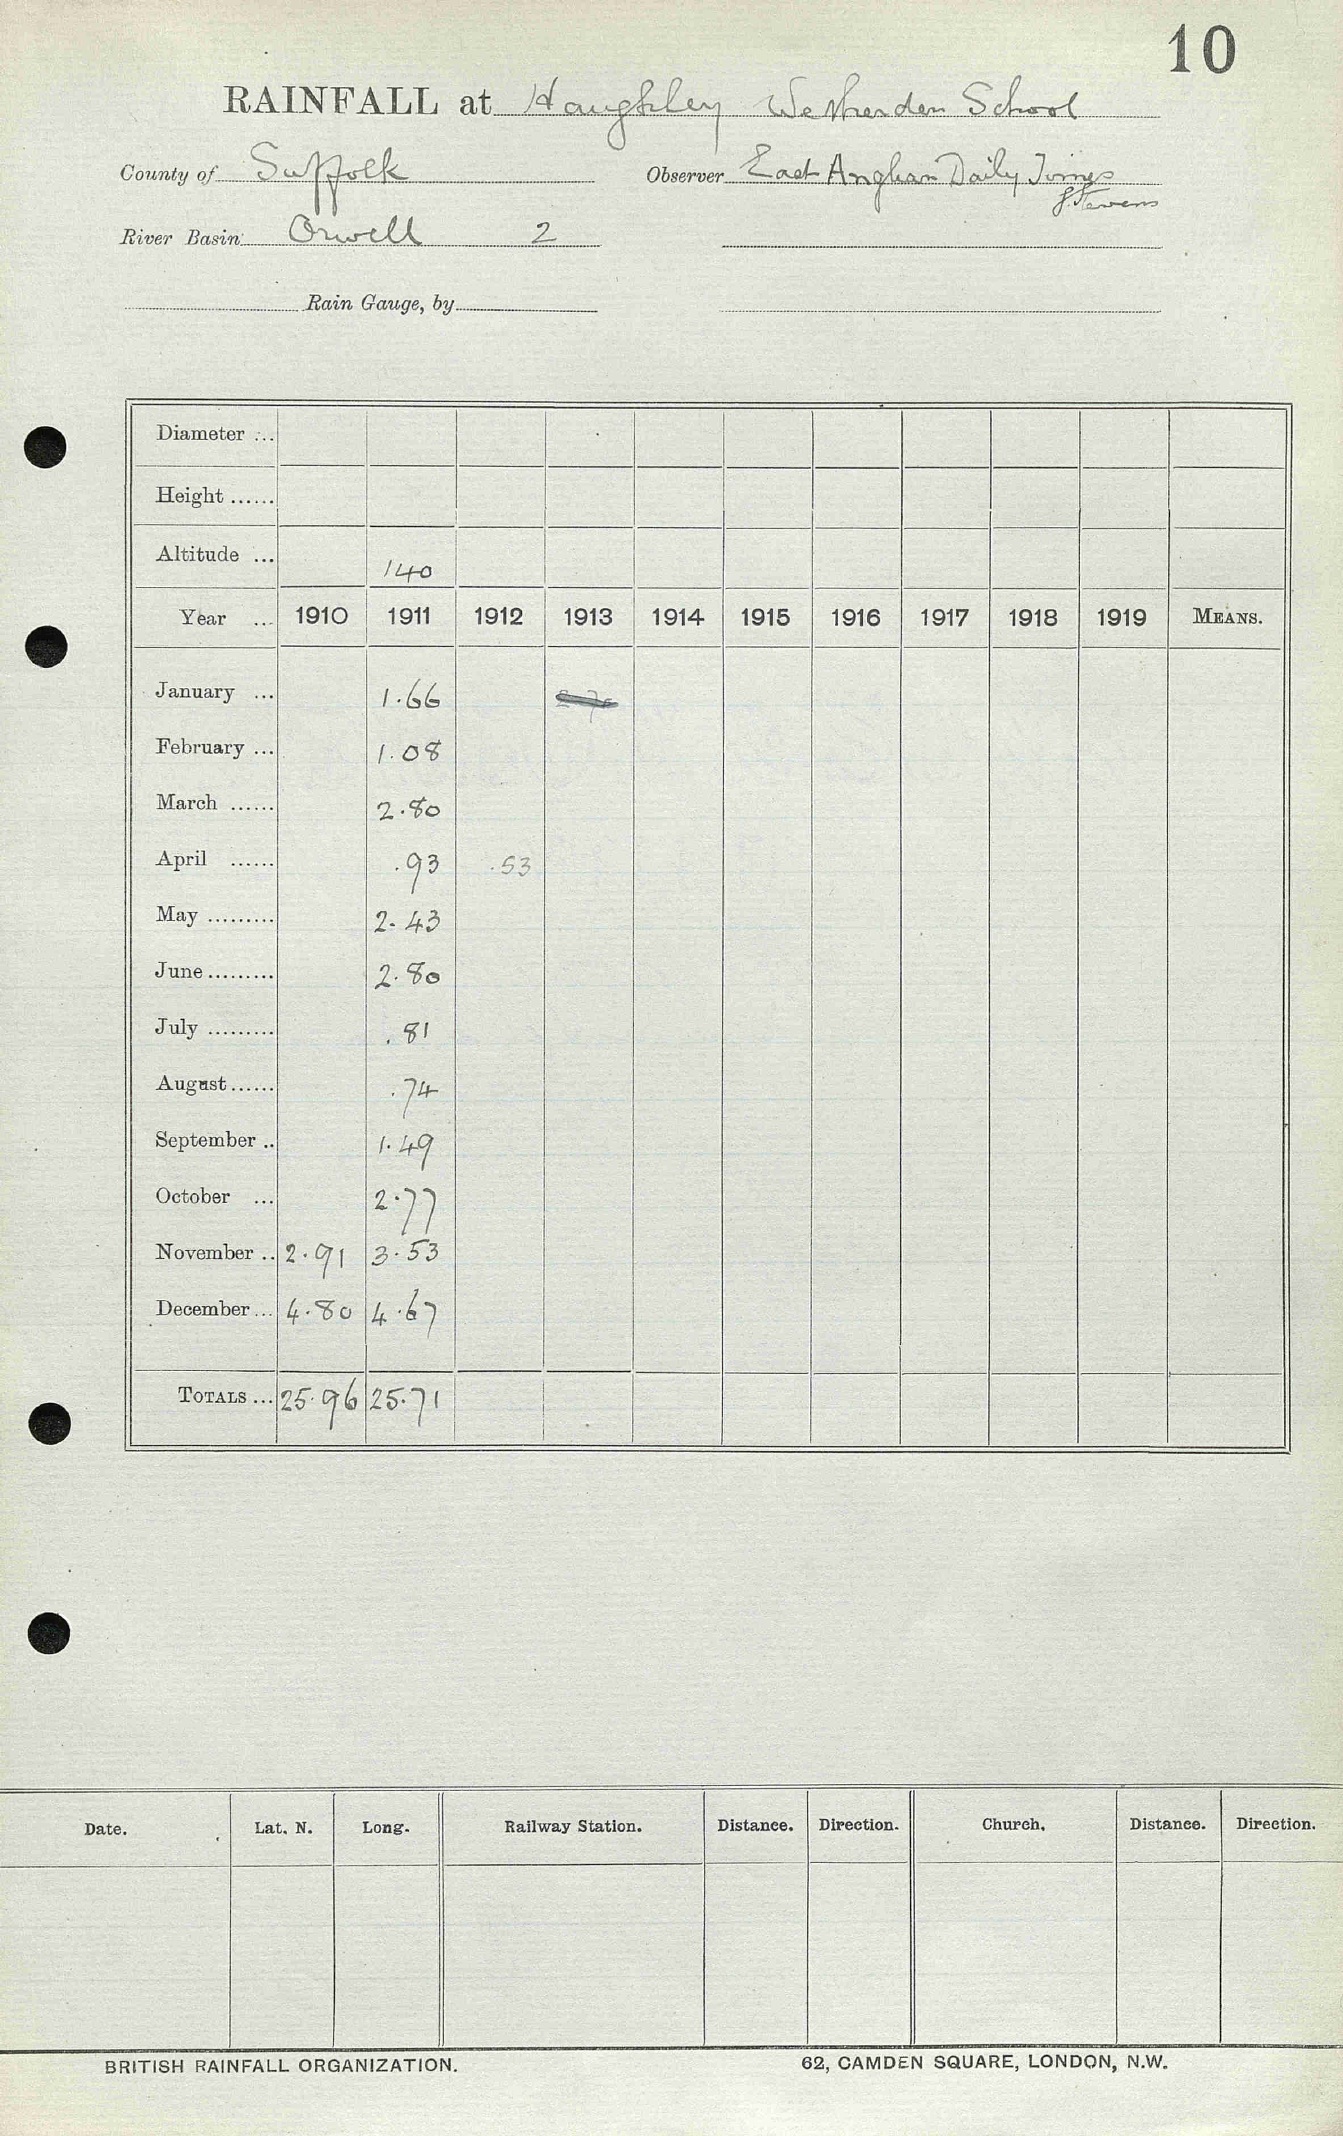 10
RAINFALL at Haughley Wetherden School
County of Suffolk Observer East Anglian Daily Times
J. Stevens
River Basin Orwell 2
Rain Gauge, by
Diameter ...
Height ......
Altitude ... 140
Year ... 1910 1911 1912 1913 1914 1915 1916 1917 1918 1919 MEANS.
January ... 1.66
February ... 1.08
March ...... 2.80
April ...... .93 .53
May ......... 2.43
June ......... 2.80
July ......... .81
August ...... .74
September .. 1.49
October ... 2.77
November .. 2.91 3.53
December ... 4.80 4.67
TOTALS ... 25.96 25.71
Date. Lat. N. Long. Railway Station. Distance. Direction. Church. Distance. Direction.
BRITISH RAINFALL ORGANIZATION. 62, CAMDEN SQUARE, LONDON, N.W.